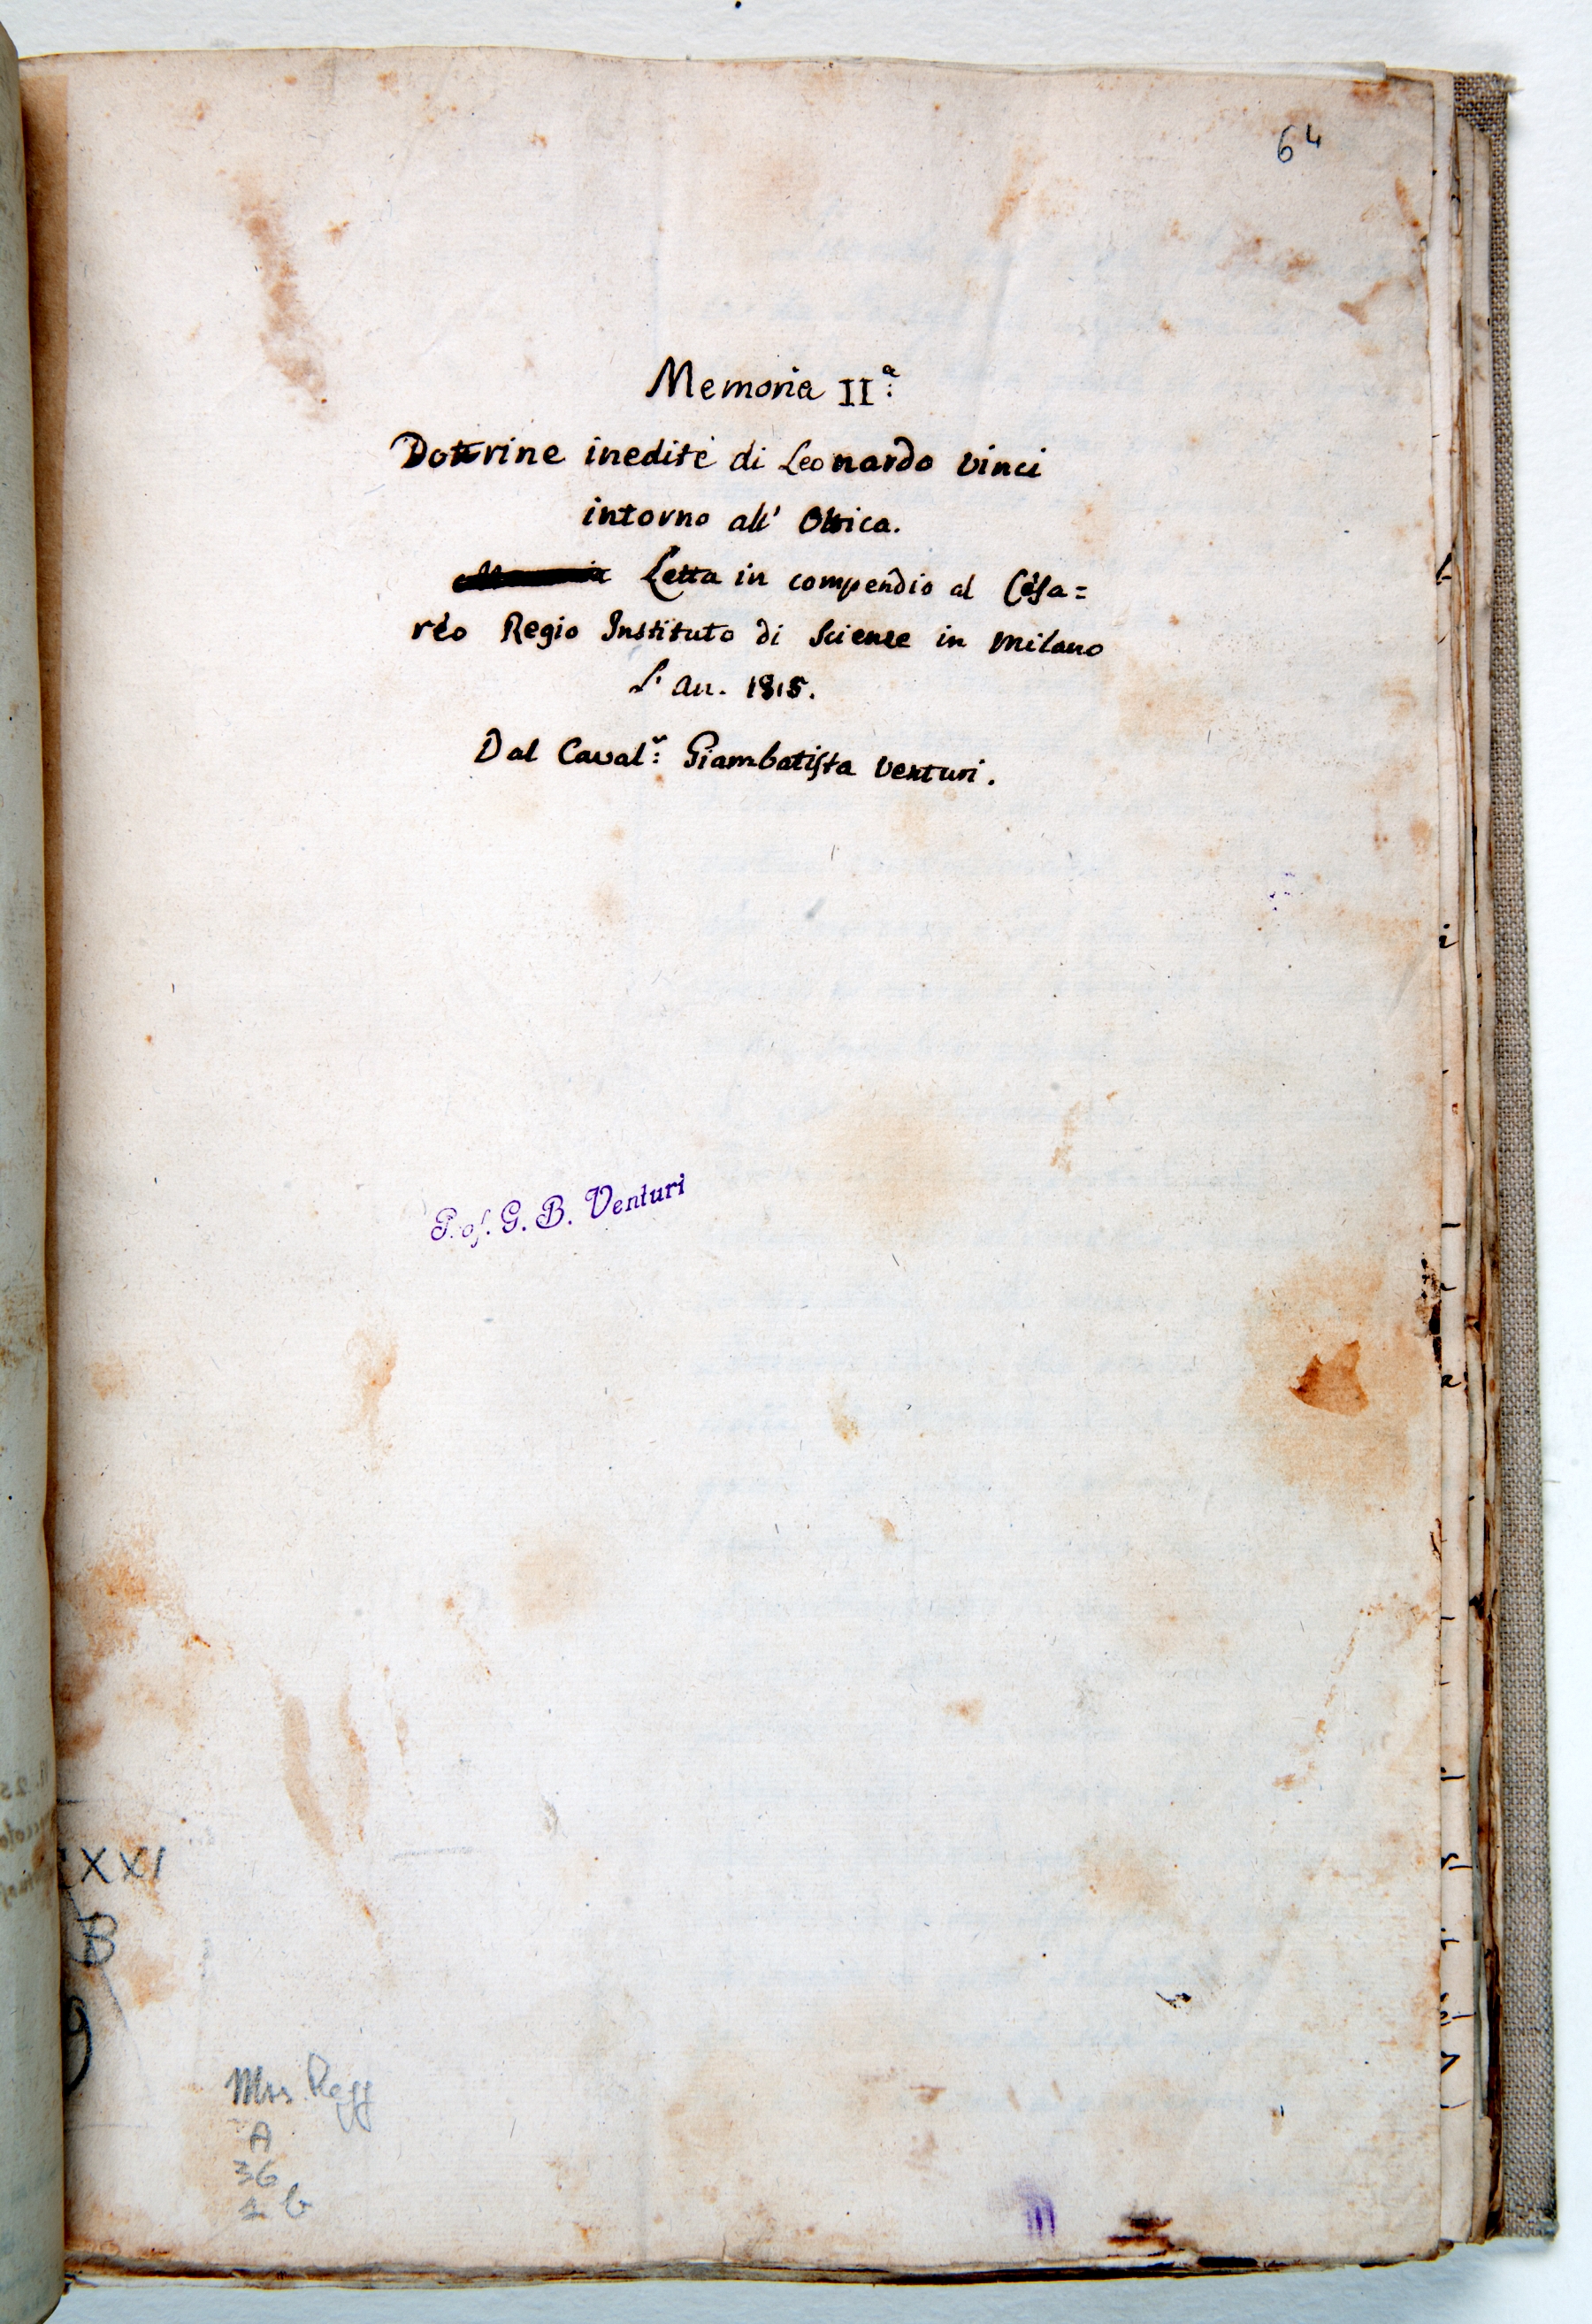 64
Memoria IIª:
Dottrine inedite di Leonardo Vinci
intorno all' Ottica.
Letta in compendio al Cesa=
reo Regio Instituto di Scienze in Milano
L' an. 1815.
Dal Caval.r: Giambatista Venturi.
Prof. G. B. Venturi
XXI
B
Mss. Regg
A
36
1 b